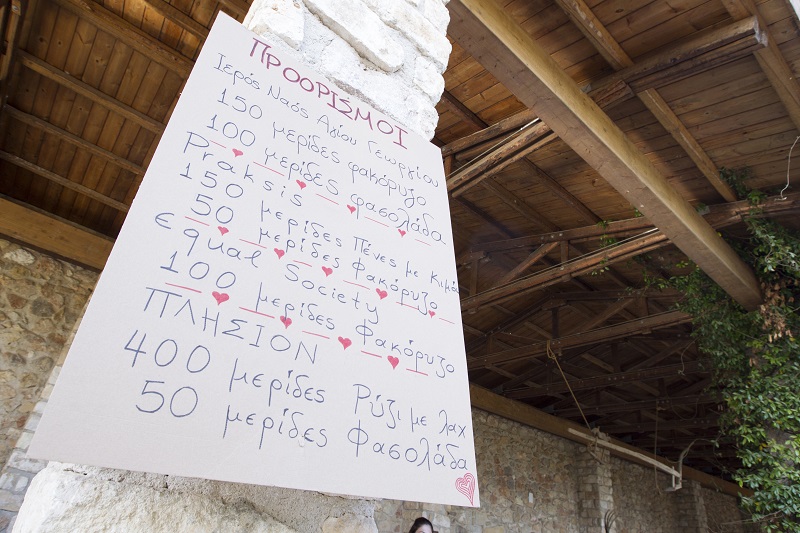 ΠΡΟΟΡΙΣΜΟΙ
Ιερός Ναός Αγίου Γεωργίου
150 μερίδες φακόρυζο
100 μερίδες φασολάδα
Praksis
150 μερίδες Πένες με κιμά
50 μερίδες Φακόρυζο
equal Society
100 μερίδες Φακόρυζο
ΠΛΗΣΙΟΝ
400 μερίδες Ρύζι με λαχ
50 μερίδες Φασολάδα